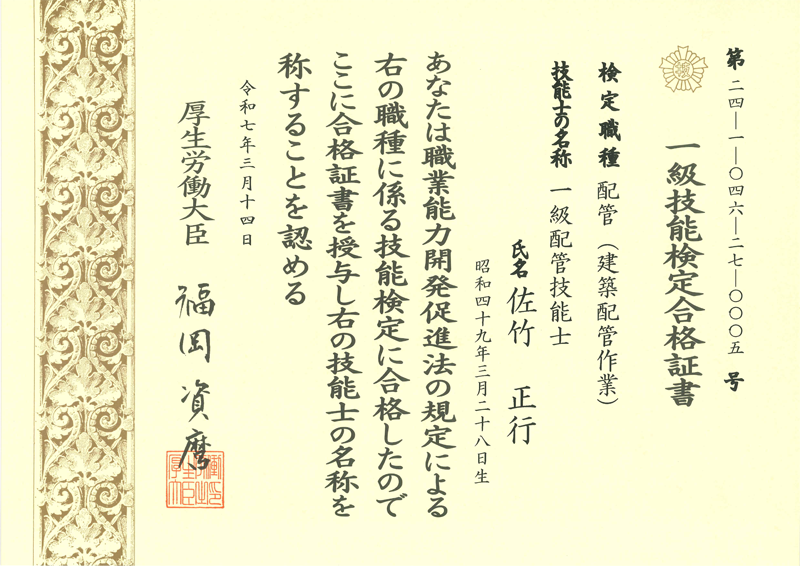 第 二四―一―〇四六―二七―〇〇〇五 号
一級技能検定合格証書
検定職種 配管(建築配管作業)
技能士の名称 一級配管技能士
氏名 佐竹 正行
昭和四十九年三月二十八日生
あなたは職業能力開発促進法の規定による
右の職種に係る技能検定に合格したので
ここに合格証書を授与し右の技能士の名称を
称することを認める
令和七年三月十四日
厚生労働大臣 福岡 資麿